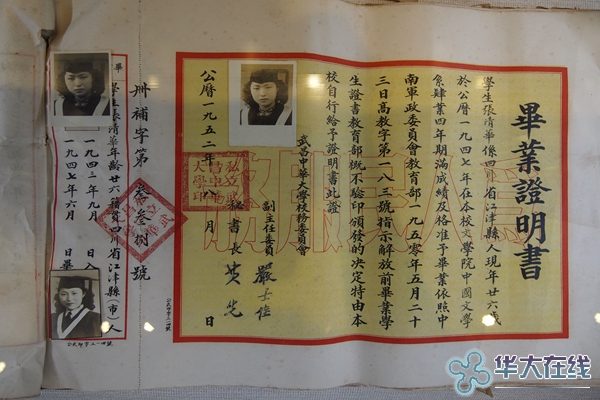 畢業證明書
學生張清華係四川省江津縣人現年廿六歲
於公曆一九四七年在本校文學院中國文學
系肄業四年期滿成績及格准予畢業依照中
南軍政委員會教育部一九五零年五月二十
三日高教字第一八三號指示解放前畢業學
生證書教育部概不驗印頒發的決定特由本
校自行給予證明書此證
武昌中華大學校務委員會
副主任委員 嚴士佳
秘書長
公曆一九五二年八月 日
為人民服務
私立武昌中華大學印
卅補字第叁佰叁捌號
學生張清華年齡廿六籍貫四川省江津縣(市)人
一九四三年九月 日入
一九四七年六月 日畢
華大在线